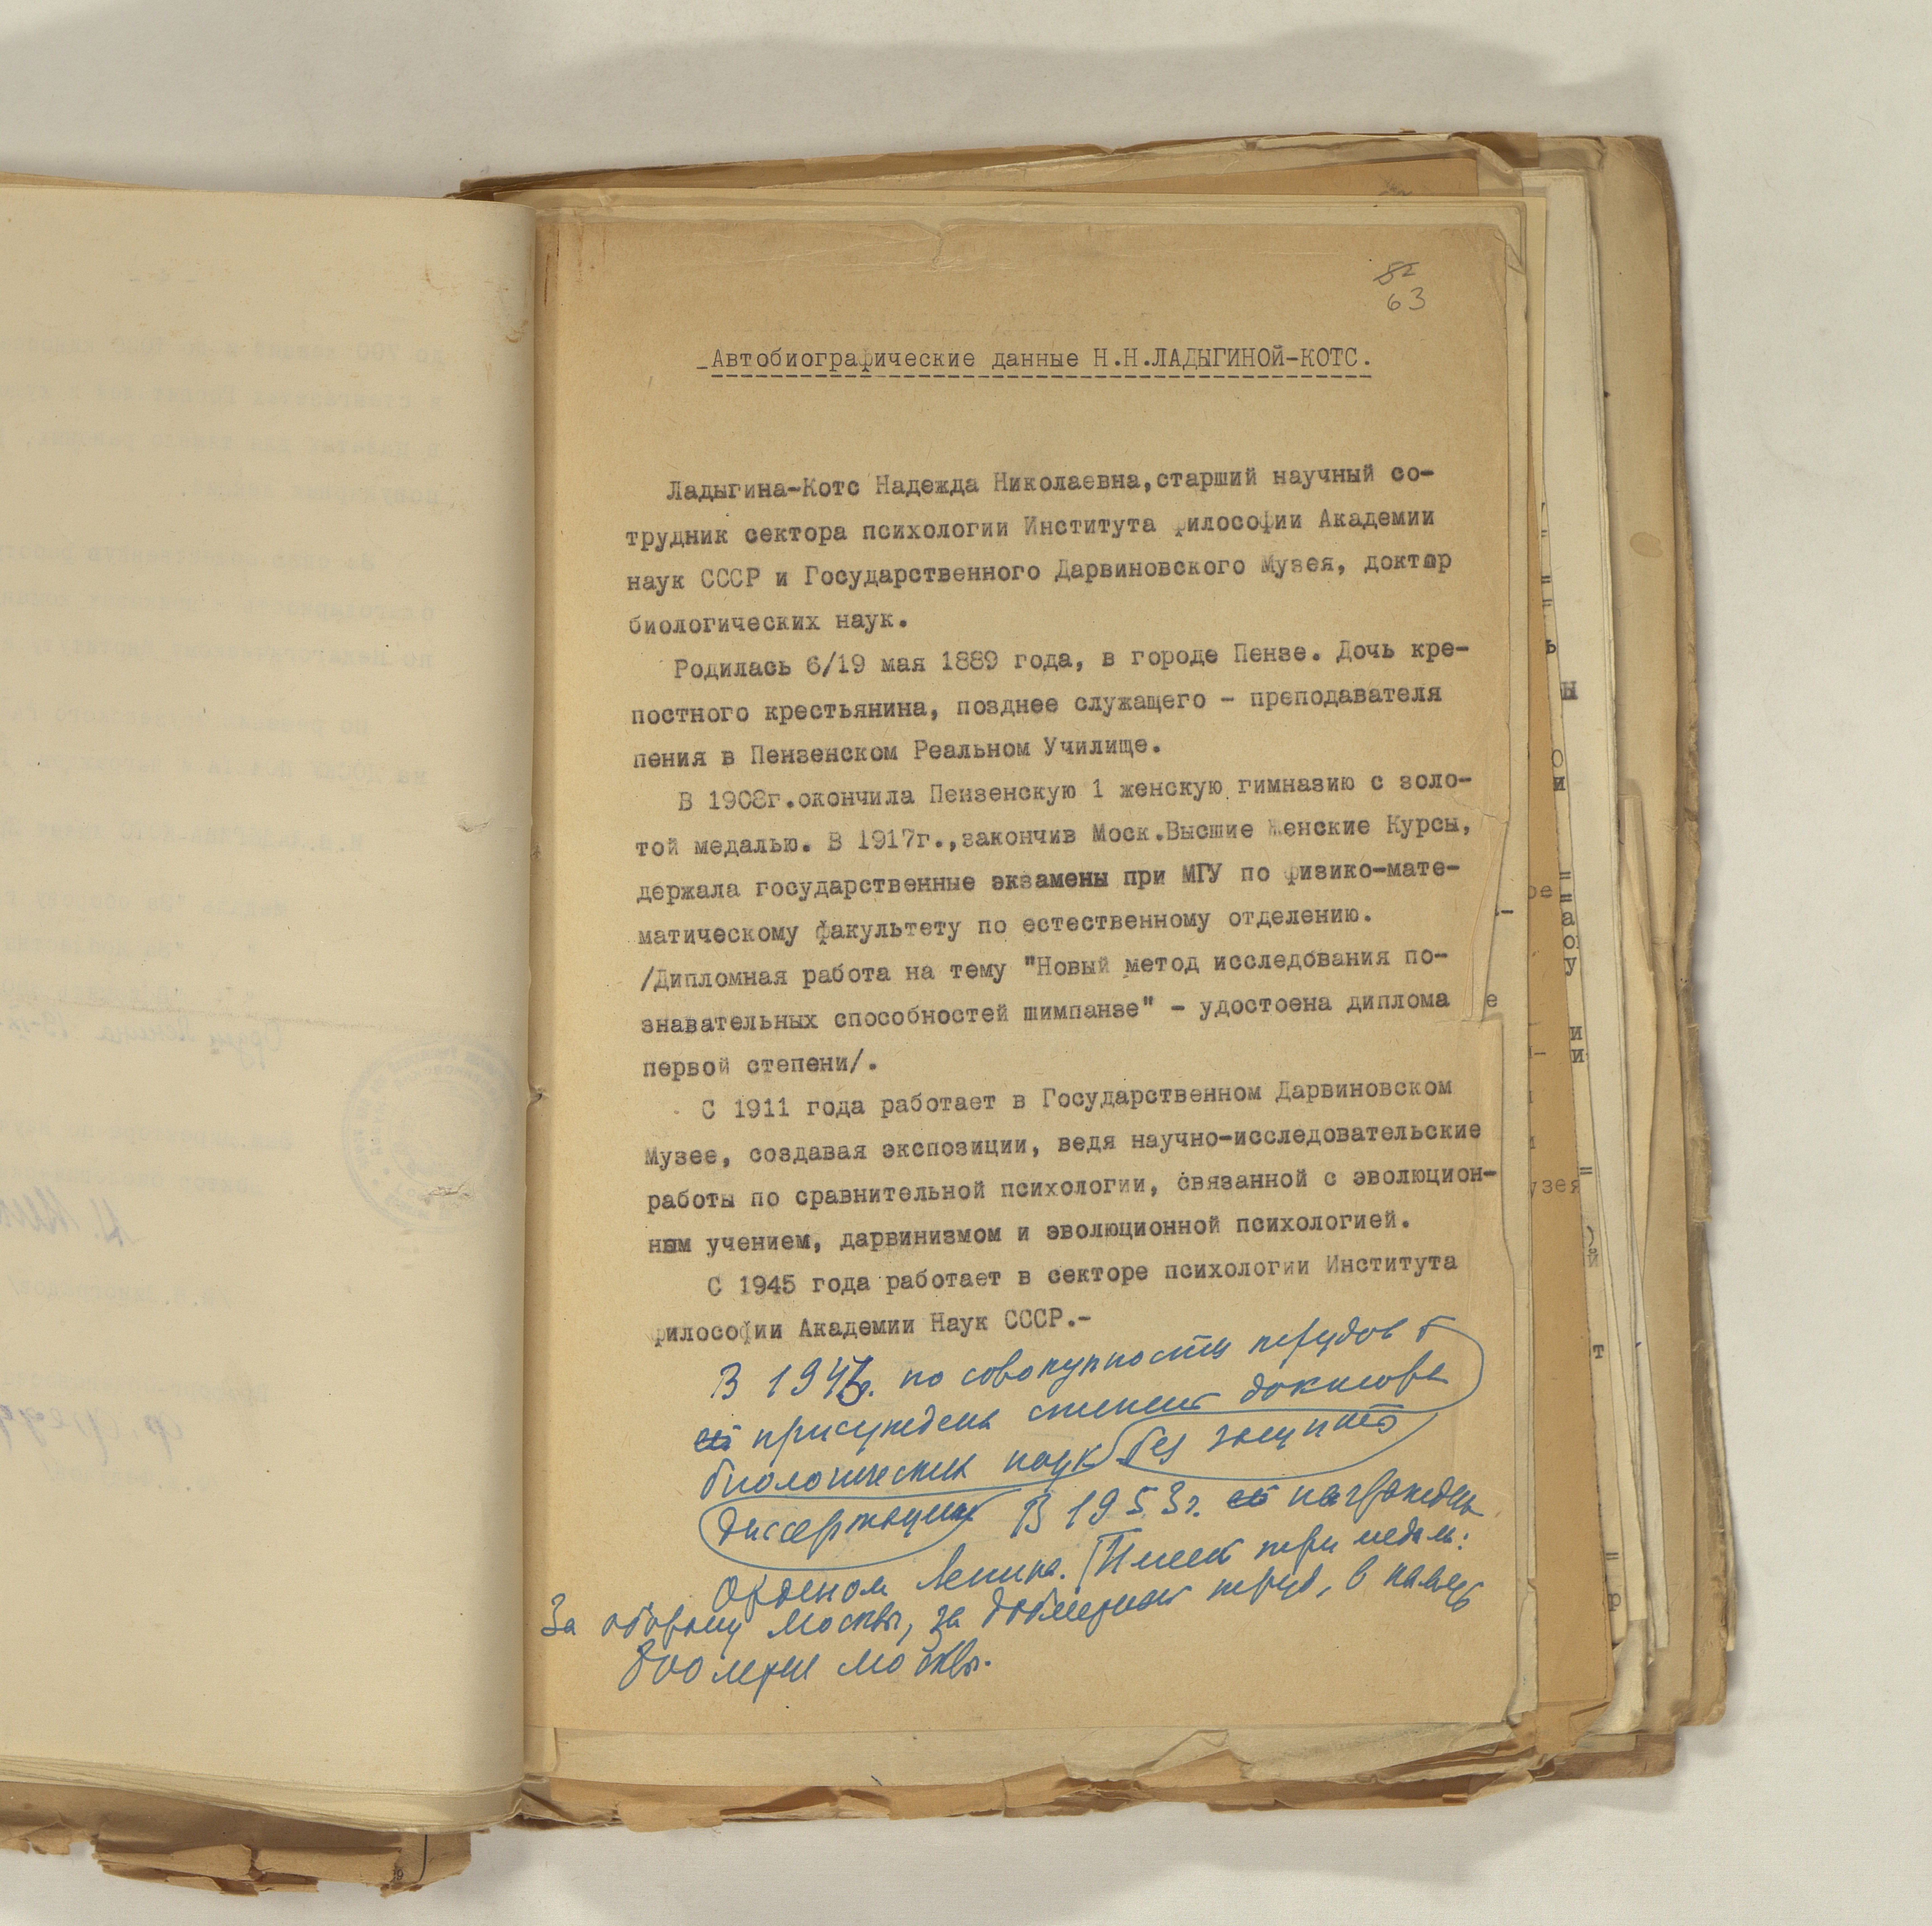 52
63
Автобиографические данные Н.Н.ЛАДЫГИНОЙ-КОТС.
Ладыгина-Котс Надежда Николаевна,старший научный со-
трудник сектора психологии Института философии Академии
наук СССР и Государственного Дарвиновского Музея, доктор
биологических наук.
Родилась 6/19 мая 1889 года, в городе Пензе. Дочь кре-
постного крестьянина, позднее служащего - преподавателя
пения в Пензенском Реальном Училище.
В 1908г.окончила Пензенскую 1 женскую гимназию с золо-
той медалью. В 1917г.,закончив Моск.Высшие Женские Курсы,
держала государственные экзамены при МГУ по физико-мате-
матическому факультету по естественному отделению.
/Дипломная работа на тему "Новый метод исследования по-
знавательных способностей шимпанзе" - удостоена диплома
первой степени/.
С 1911 года работает в Государственном Дарвиновском
Музее, создавая экспозиции, ведя научно-исследовательские
работы по сравнительной психологии, связанной с эволюцион-
ным учением, дарвинизмом и эволюционной психологией.
С 1945 года работает в секторе психологии Института
философии Академии Наук СССР.-
В 194 г. по совокупности трудов
ей присуждена степень доктора
биологических наук без защиты
диссертации В 1953г. награждена
Орденом Ленина. Имеет три медали:
За оборону Москвы, за доблестный труд, в память
800 летия Москвы.